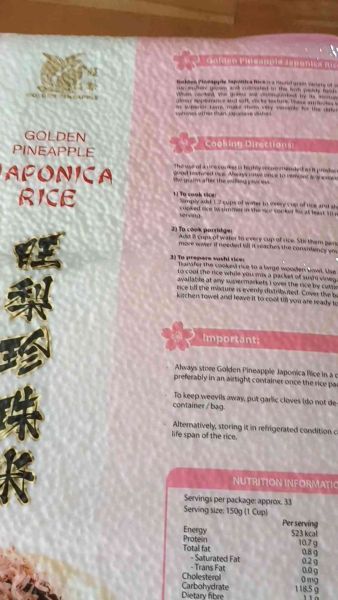 GOLDEN PINEAPPLE
GOLDEN
PINEAPPLE
JAPONICA
RICE
旺梨珍珠米
Golden Pineapple Japonica Ric
Golden Pineapple Japonica Rice is a round grain variety of
Cooking Directions:
The use of a rice cooker is highly recommended as it produc
good textured rice. Always rinse rice to remove any
the grains after the milling process.
1) To cook rice:
Simply add 1.2 cups of water to every cup of rice and
cooked rice to simmer in the rice cooker for at least 10 m
serving.
2) To cook porridge:
Add 8 cups of water to every cup of rice. Stir them
more water if needed till it reaches the consistency you
3) To prepare sushi rice:
Transfer the cooked rice to a large wooden bowl. Use
to cool the rice while you mix a packet of sushi vinega
available at any supermarkets ) over the rice by
rice till the mixture is evenly distributed. Cover the
kitchen towel and leave it to cool till you are ready to
Important:
Always store Golden Pineapple Japonica Rice in a c
preferably in an airtight container once the rice pa
To keep weevils away, put garlic cloves (do not de-
container / bag.
Alternatively, storing it in refrigerated condition c
life span of the rice.
NUTRITION INFORMATIO
Servings per package: approx. 33
Serving size: 150g (1 Cup)
Per serving
Energy 523 kcal
Protein 10.7 g
Total fat 0.8 g
- Saturated Fat 0.2 g
- Trans Fat 0.0 g
Cholesterol 0 mg
Carbohydrate 118.5 g
Dietary fibre 1.1 g